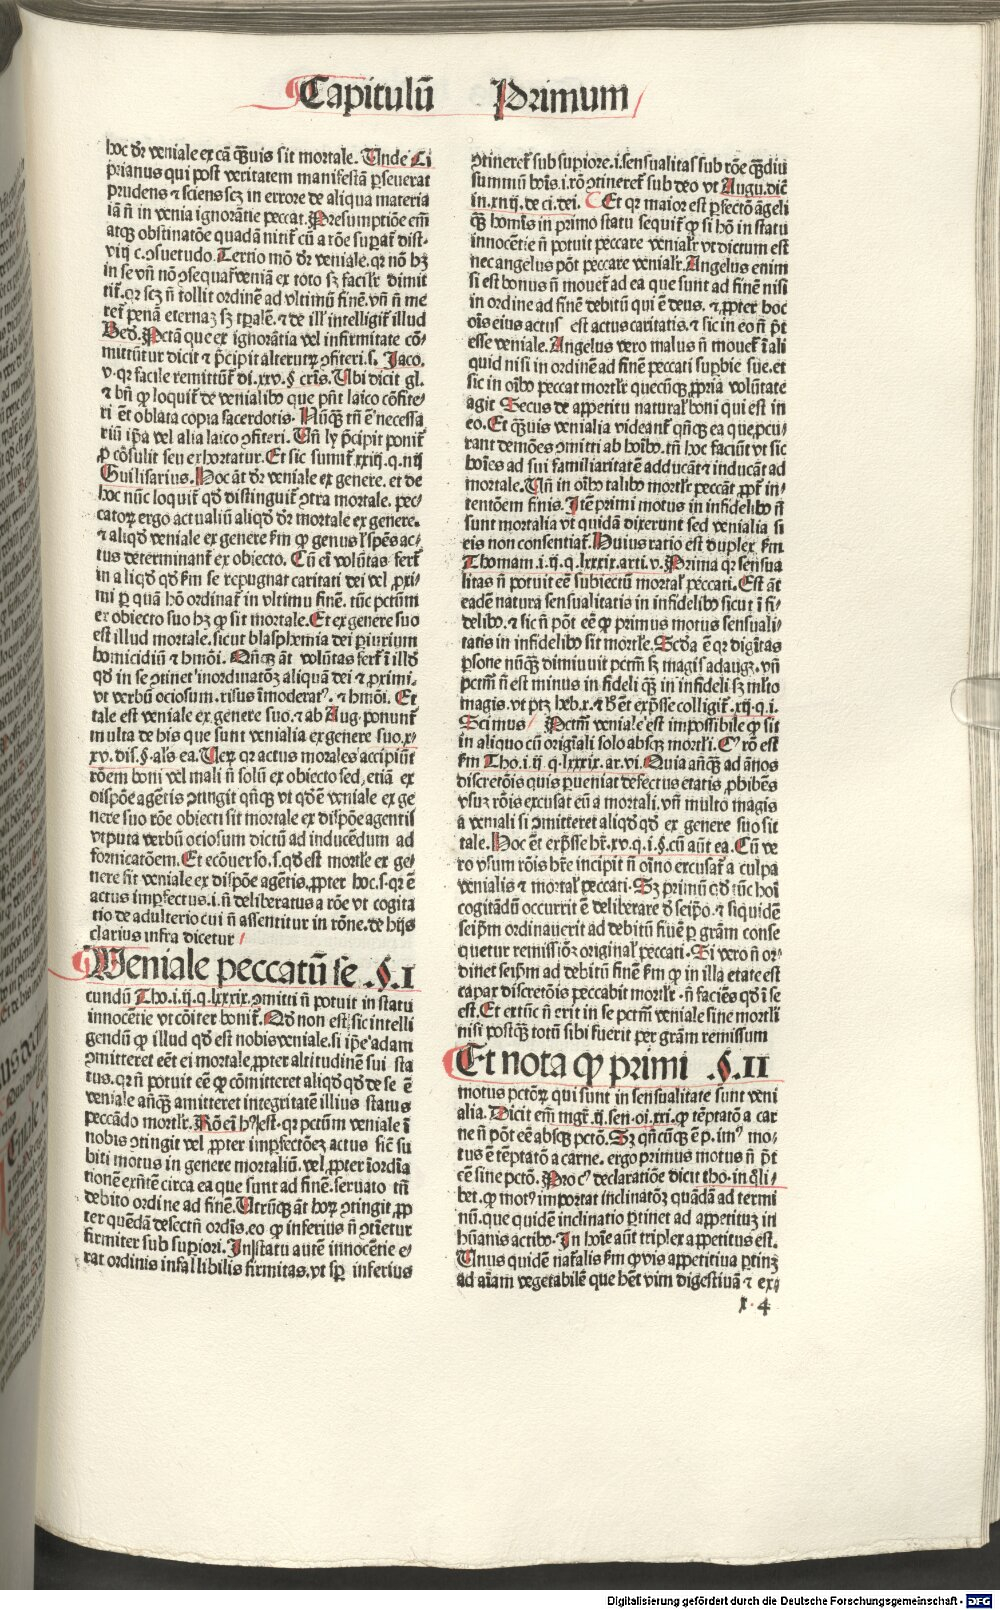 Capitulū Primum
hoc dr̄ veniale ex cā q̄̄uis sit mortale. Unde Ci
prianus qui post veritatem manifestā ꝑseuerat
prudens ⁊ sciens scꝫ in errore de aliqua materia
iā n̄ in venia ignorātie peccat. Presumptiōe em̄
atqꝫ obstinatōe quadā nitit̄ cū a rōe suꝑat̄ dist.
viij c. ɔsuetudo. Tertio mō dr̄ veniale. qr nō hꝫ
in se vn̄ nō ɔsequat̄ veniā ex toto sꝫ facilr̄ dimit
tit̄. qr scꝫ n̄ tollit ordinē ad vltimū finē. vn̄ n̄ me
ret̄ penā eternaꝫ sꝫ tꝑalē. ⁊ de ill' intelligit̄ illud
Bed. Pctā que ex ignorātia vel infirmitate cō-
mittūtur dicit ⁊ p̄cipit alterutꝝ ɔfiteri. s. Jaco.
v. qr facile remittūt̄ di. xxv. § cr̄is. Ubi dicit gl.
⁊ bn̄ ꝙ loquit̄ de venialibꝰ que pn̄t laico cōfite-
ri ēt oblata copia sacerdotis. Nūqꝫ tn̄ ē necessa
riū ip̄a vel alia laico ɔfiteri. Un̄ ly p̄cipit ponit̄
ꝓ cōsulit seu exhortatur. Et sic sumit̄ xxiij. q. iiij
Guilisarius. Hoc āt dr̄ veniale ex genere. et de
hoc nūc loquit̄ qd̄ distinguit̄ ɔtra mortale. pec-
catoꝝ ergo actualiū aliqd̄ dr̄ mortale ex genere.
⁊ aliqd̄ veniale ex genere km̄ ꝙ genus l' spēs ac-
tus determinant̄ ex obiecto. Cū ei volūtas fert̄
in aliqd̄ qd̄ km̄ se repugnat caritati dei vel ꝓxi-
mi ꝑ quā hō ordinat̄ in vltimū finē. tūc pctūm
ex obiecto suo hꝫ ꝙ sit mortale. Et ex genere suo
est illud mortale. sicut blasphemia dei periurium
homicidiū ⁊ hmōi. Qn̄qꝫ āt volūtas fert̄ ī illd̄
qd̄ in se ɔtinet inordinatōꝫ aliquā dei ⁊ ꝓximi.
vt verbū ociosum. risus īmoderatꝰ. ⁊ hmōi. Et
tale est veniale ex genere suo. ⁊ ab Aug. ponunt̄
multa de his que sunt venialia ex genere suo. x-
xv. dis. §. als ea. Ueꝝ qr actus morales accipiūt
rōem boni vel mali n̄ solū ex obiecto sed etiā ex
dispōe agētis ɔtingit qn̄qꝫ vt qd̄ ē veniale ex ge
nere suo rōe obiecti sit mortale ex dispōe agentis
vtputa verbū ociosum dictū ad inducēdum ad
fornicatōem. Et ecōuerso. s. qd̄ est mortle ex ge-
nere sit veniale ex dispōe agētis. ꝓpter hoc. s. qr ē
actus imꝑfectus. i. n̄ deliberatus a rōe vt cogita
tio de adulterio cui n̄ assentitur in rōne. de hijs
clarius infra dicetur
Veniale peccatū se §.I
cundū Tho. i. ij. q. lxxxix. ɔmitti n̄ potuit in statu
innocētie vt cōiter bonit̄. Qd̄ non est sic intelli
gendū ꝙ illud qd̄ est nobis veniale. si ip̄e adam
ɔmitteret eēt ei mortale ꝓpter altitudinē sui sta
tus. qr n̄ potuit eē ꝙ cōmitteret aliqd̄ qd̄ de se ē
veniale anqꝫ̄ amitteret integritatē illius status
peccādo mortlr̄. Rō ei hꝰ est. qr pctūm veniale ī
nobis ɔtingit vel ꝓpter imꝑfectōeꝫ actus sic̄ su
biti motus in genere mortaliū. vel ꝓpter īordīa
tionē exn̄tē circa ea que sunt ad finē. seruato tn̄
debito ordine ad finē. Utrūqꝫ āt hoꝝ ɔtingit ꝓp
ter quēdā defectū ordīs. eo ꝙ inferius n̄ ɔtīetur
firmiter sub suꝑiori. In statu autē innocētie e-
rat ordinis infallibilis firmitas. vt sꝑ inferius
ɔtineret̄ sub suꝑiore. i. sensualitas sub rōe qꝫ̄diu
summū hoīs. i. rō ɔtineret̄ sub deo vt Augu. dic̄
in. xiiij. de ci. dei. Et qr maior est ꝑfectō āgeli
qꝫ̄ homīs in primo statu sequit̄ ꝙ si hō in statu
innocētie n̄ potuit peccare venialr̄ vt dictum est
nec angelus pōt peccare venialr̄. Angelus enim
si est bonus n̄ mouet̄ ad ea que sunt ad finē nisi
in ordine ad finē debitū qui ē deus. ⁊ ꝓpter hoc
oīs eius actus est actus caritatis. ⁊ sic in eo n̄ p̄t
esse veniale. Angelus vero malus n̄ mouet̄ ī ali
quid nisi in ordinē ad finē peccati suꝑbie sue. et
sic in oībꝰ peccat mortlr̄ quecūqꝫ ꝓpria volūtate
agit Secus de appetitu naturali boni qui est in
eo. Et qꝫ̄uis venialia videant̄ qn̄qꝫ ea que ꝓcu-
rant demōes ɔmitti ab hoībꝰ. tn̄ hoc faciūt vt sic
hoīes ad sui familiaritatē adducāt ⁊ inducāt ad
mortale. Un̄ in oībꝰ talibꝰ mortlr̄ peccāt ꝓpt̄ in-
tentōem finis. Itē primi motus in infidelibꝰ n̄
sunt mortalia vt quidā dixerunt sed venialia si
eis non consentiat̄. Huius ratio est duplex km̄
Thomam. i. ij. q. lxxxix. arti. v. Prima qr sensua
litas n̄ potuit eē subiectū mortal' peccati. Est āt
eadē natura sensualitatis in infidelibꝰ sicut ī fi-
delibꝰ. ⁊ sic n̄ pōt eē ꝙ primus motus sensuali-
tatis in infidelibꝰ sit mortle. Scd̄a ē qr dignitas
ꝑsone nūqꝫ̄ diminuit pctm̄ sꝫ magis adaugꝫ. vn̄
pctm̄ n̄ est minus in fideli qꝫ̄ in infideli sꝫ mlto
magis. vt ptꝫ heb. x. ⁊ h' ēt exp̄sse colligit̄. xij. q. i.
Scimus Pctm̄ veniale est impossibile ꝙ sit
in aliquo cū originali solo absqꝫ mortli. Cꝰ rō est
km̄ Tho. i. ij q. lxxxix. ar. vi. Quia anqꝫ̄ ad ānos
discretōis quis ꝑueniat defectus etatis ꝓhibēs
vsuꝫ rōis excusat eū a mortali. vn̄ multo magis
a veniali si ɔmitteret aliqd̄ qd̄ ex genere suo sit
tale. Hoc ēt exp̄sse hr̄. xv. q. i. §. cū aūt ea. Cū ve
ro vsum rōis hr̄e incipit n̄ oīno excusat̄ a culpa
venialis ⁊ mortal' peccati. Sꝫ primū qd̄ tūc hoī
cogitādū occurrit ē deliberare d̄ seip̄o. ⁊ siquidē
seip̄m ordinauerit ad debitū finē ꝑ grām conse
quetur remissiōꝫ original' peccati. Si vero n̄ or-
dinet seip̄m ad debitū finē km̄ ꝙ in illa etate est
capax discretōis peccabit mortlr̄. n̄ faciēs qd̄ ī se
est. Et extūc n̄ erit in se pctm̄ veniale sine mortli
nisi postqꝫ̄ totū sibi fuerit per grām remissum
Et nota ꝙ primi §.II
motus pctōꝝ qui sunt in sensualitate sunt veni
alia. Dicit em̄ mgr̄ ij. sen. di. xxi. ꝙ tēptatō a car
ne n̄ pōt eē absqꝫ pctō. Sꝫ qn̄cūqꝫ ē p. imꝰ mo-
tus ē tēptatō a carne. ergo primus motus n̄ p̄t
eē sine pctō. Pro cꝰ declaratiōe dicit tho. in q̄li-
bet. ꝙ motꝰ importat inclinatōꝫ quādā ad termi
nū. que quidē inclinatio ꝑtinet ad appetituꝫ in
hūanis actibꝰ. In hoīe aūt triplex appetitus est.
Unus quidē nat̄alis km̄ ꝙ vis appetitiua ꝑtinꝫ
ad aīam vegetabilē que hēt vim digestiuā ⁊ ex-
x 4
Digitalisierung gefördert durch die Deutsche Forschungsgemeinschaft - DFG